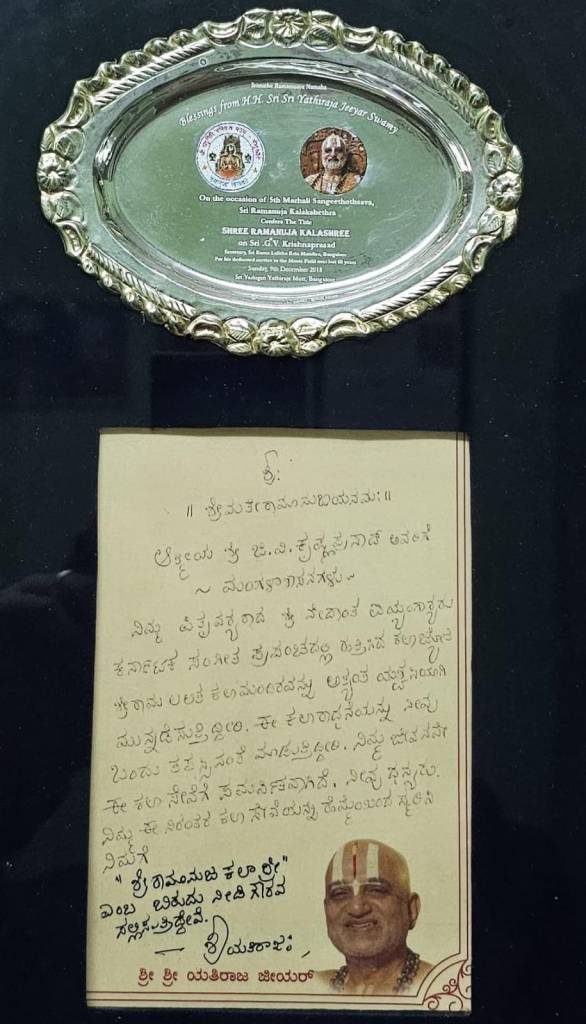 Srimathe Ramanujaya Namaha
Blessings from H.H. Sri Sri Yathiraja Jeeyar Swamy
On the occasion of 5th Marhali Sangeethothsava,
Sri Ramanuja Kalakshethra
Confers The Title
SHREE RAMANUJA KALASHREE
on Sri .G.V. Krishnaprasad
Secretary, Sri Rama Lalitha Kala Mandira, Bangalore
For his dedicated service in the Music Field over last 40 years
Sunday, 9th December 2018
Sri Yadugiri Yathiraja Mutt, Bangalore
ಶ್ರೀ:
॥ ಶ್ರೀಮತೇ ರಾಮಾನುಜಾಯ ನಮಃ ॥
ಆತ್ಮೀಯ ಶ್ರೀ ಜಿ.ವಿ.ಕೃಷ್ಣಪ್ರಸಾದ್ ಅವರಿಗೆ
~ ಮಂಗಳಾಶಾಸನಗಳು ~
ನಿಮ್ಮ ಪಿತೃವರ್ಯರಾದ ಶ್ರೀ ವೇದಾಂತ ಅಯ್ಯಂಗಾರ್ಯರು
ಕರ್ನಾಟಕ ಸಂಗೀತ ಪ್ರಪಂಚದಲ್ಲಿ ಹತ್ತಿಸಿದ ಕಲಾಜ್ಯೋತಿ
ಶ್ರೀರಾಮ ಲಲಿತ ಕಲಾಮಂದಿರವನ್ನು ಅತ್ಯಂತ ಯಶಸ್ವಿಯಾಗಿ
ಮುನ್ನಡೆಸುತ್ತಿದ್ದೀರಿ. ಈ ಕಲಾರಾಧನೆಯನ್ನು ನೀವು
ಒಂದು ತಪಸ್ಸಿನಂತೆ ಮಾಡುತ್ತಿದ್ದೀರಿ. ನಿಮ್ಮ ಜೀವನವೇ
ಈ ಕಲಾ ಸೇವೆಗೆ ಸಮರ್ಪಿತವಾಗಿದೆ. ನೀವು ಧನ್ಯರು.
ನಿಮ್ಮ ಈ ನಿರಂತರ ಕಲಾ ಸೇವೆಯನ್ನು ಹೆಮ್ಮೆಯಿಂದ ಸ್ಮರಿಸಿ
ನಿಮಗೆ
"ಶ್ರೀ ರಾಮಾನುಜ ಕಲಾ ಶ್ರೀ"
ಎಂಬ ಬಿರುದು ನೀಡಿ ಗೌರವ
ಸಲ್ಲಿಸುತ್ತಿದ್ದೇವೆ.
— ಶ್ರೀಯತಿರಾಜಃ
ಶ್ರೀ ಶ್ರೀ ಯತಿರಾಜ ಜೀಯರ್